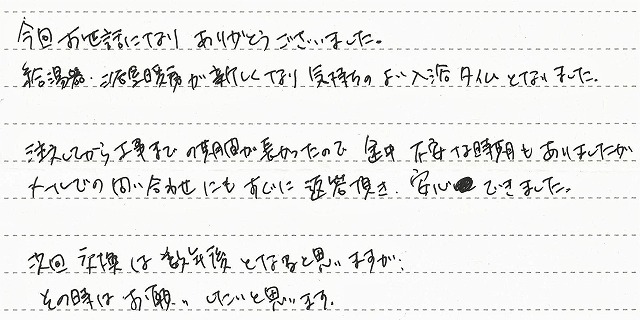 今回お世話になりありがとうございました。
給湯器・浴室暖房が新しくなり気持ちのよい入浴タイムとなりました。
注文してから工事までの期間が長かったので途中不安な時期もありましたが
メールでの問い合わせにもすぐに返答頂き、安心できました。
次回交換は数年後となると思いますが、
その時はお願いしたいと思います。